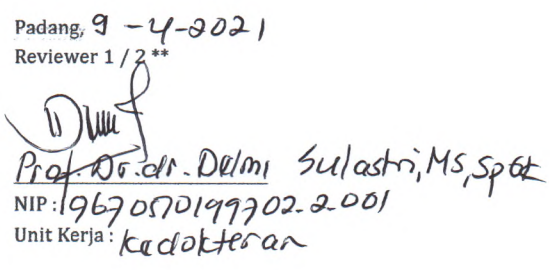 Padang, 9 - 4 - 2021
Reviewer 1 / 2 **
Prof. Dr. dr. Delmi Sulastri, MS, SpGK
NIP : 196707019702.2.001
Unit Kerja : Kedokteran